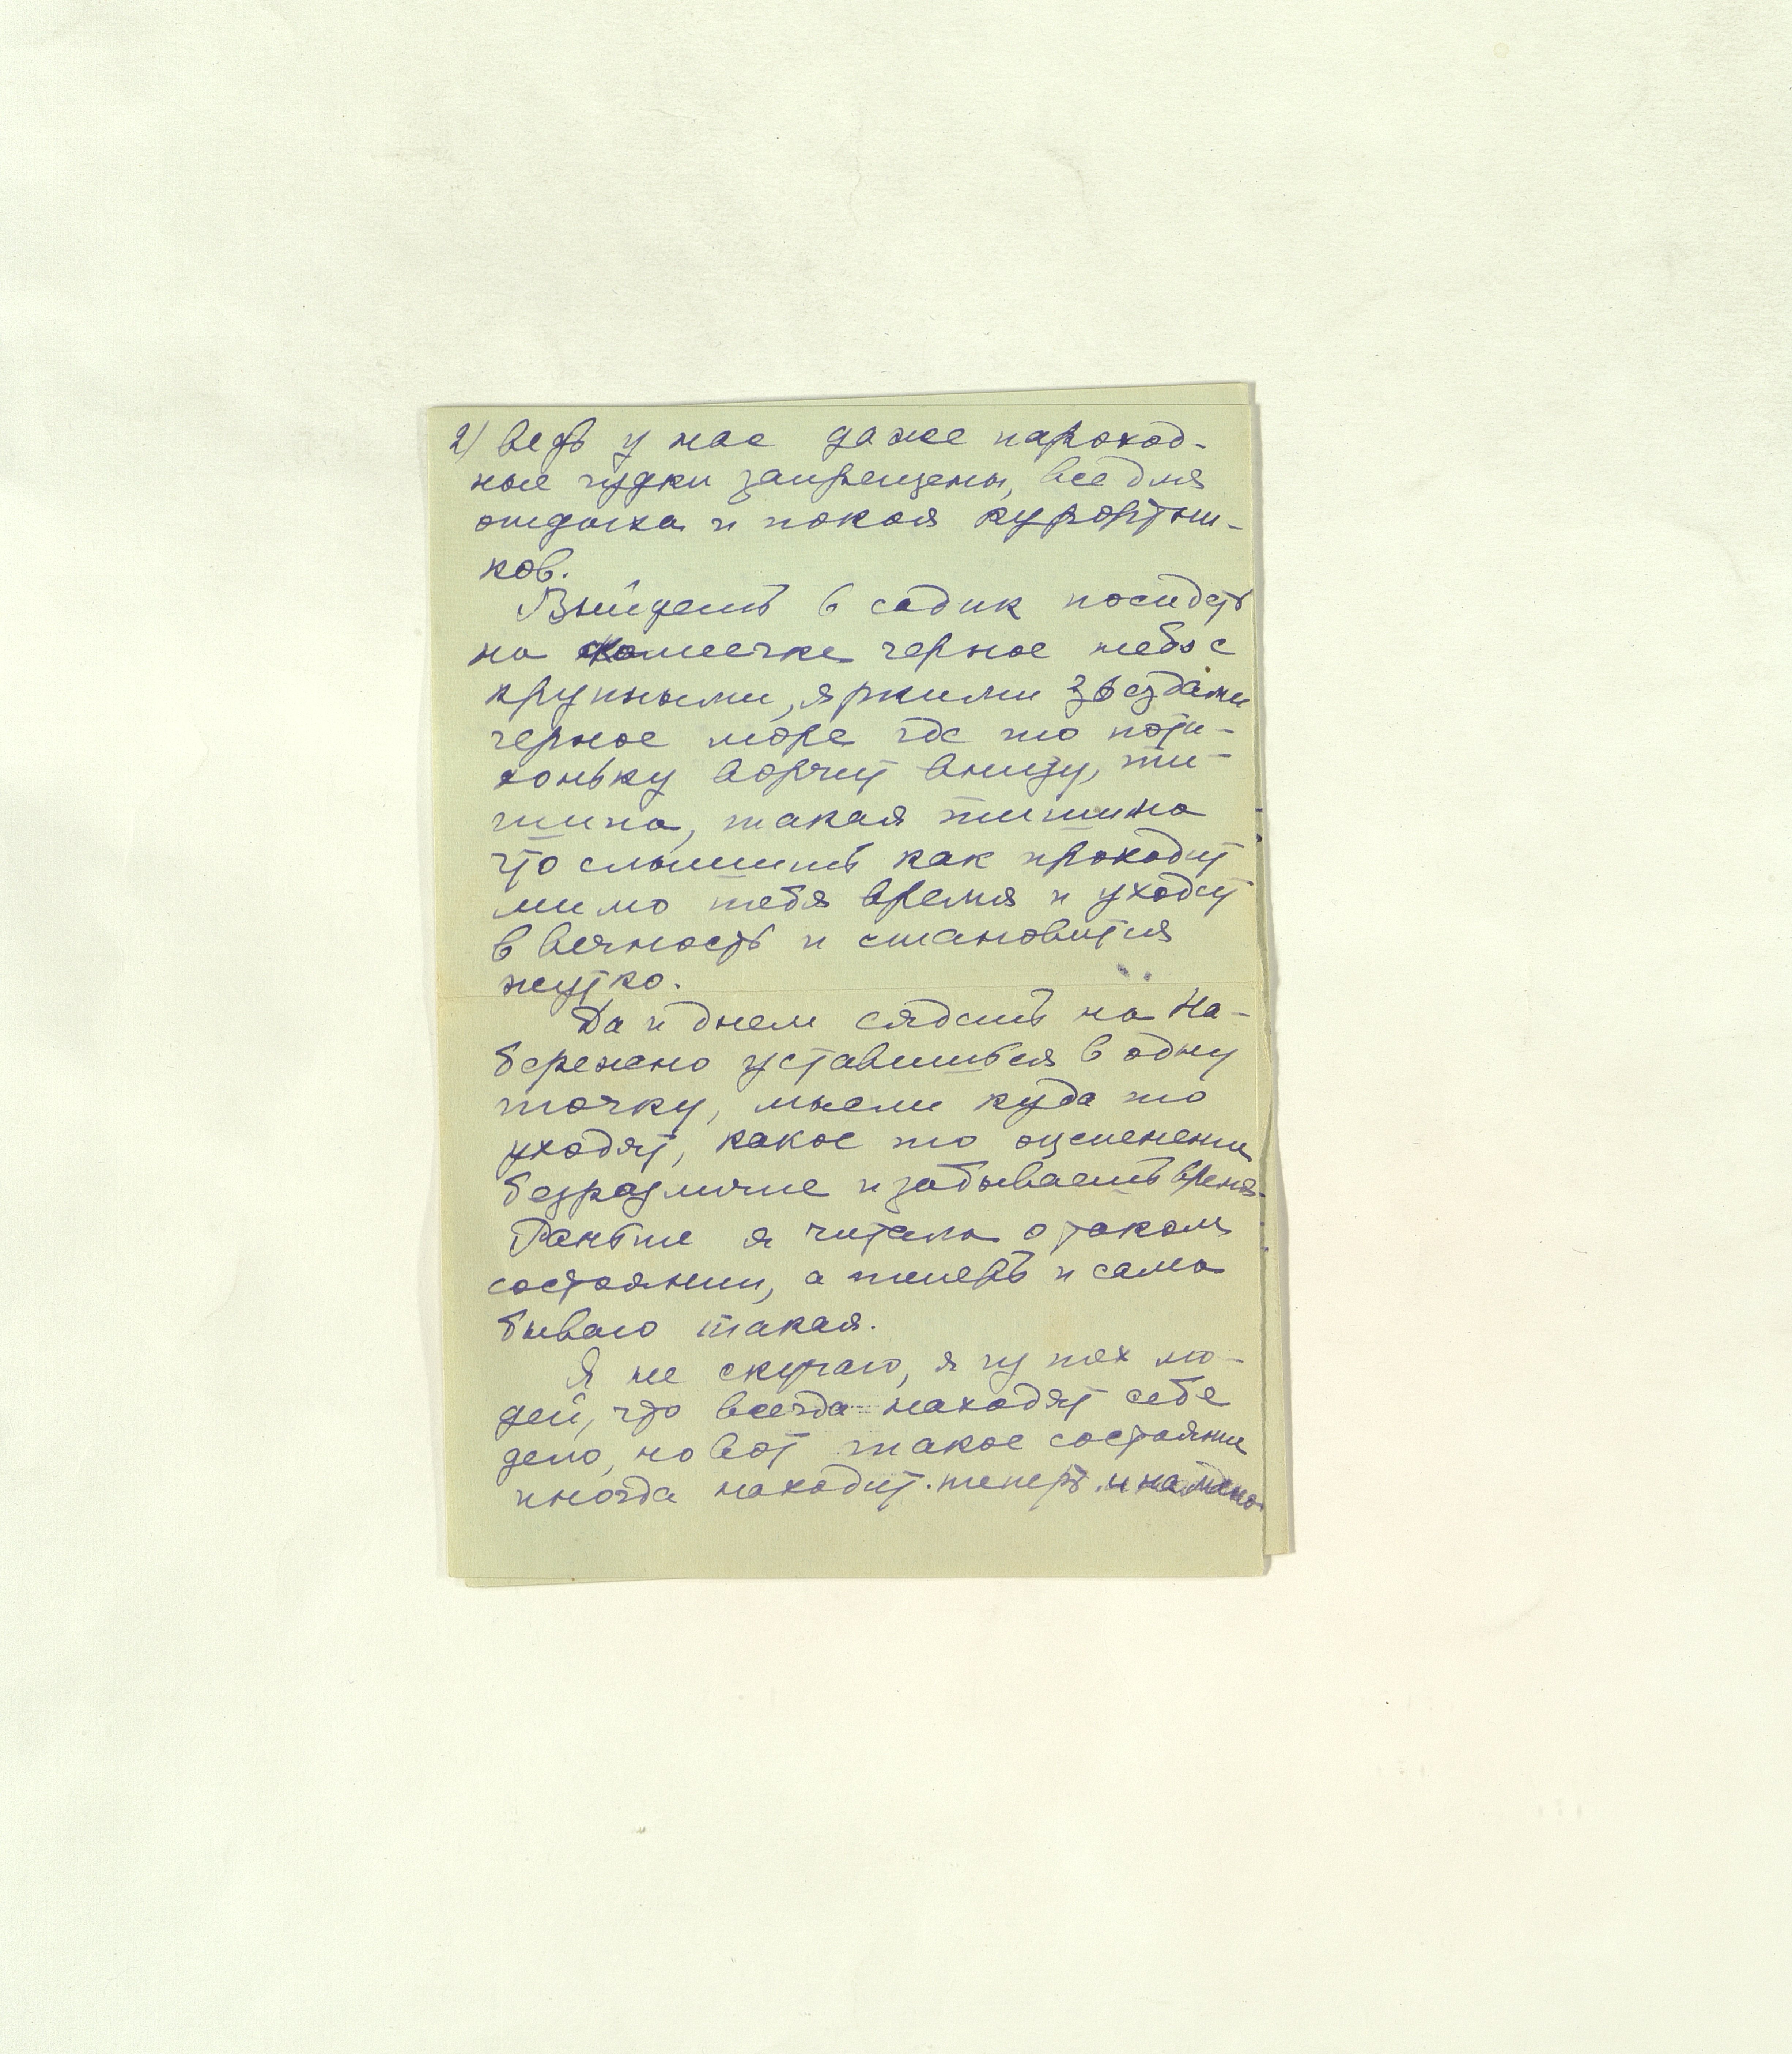 2) ведь у нас даже пароход-
ные гудки запрещены, все для
отдыха и покоя курортни-
ков.
Выйдешь в садик посидеть
на скамеечке черное небо с
крупными, яркими звездами
черное море где то поти-
хоньку ворчит внизу, ти-
шина, такая тишина
что слышишь как проходит
мимо тебя время и уходит
в вечность и становится
жутко.
Да и днем сядешь на На-
бережно уставишься в одну
точку, мысли куда то
уходят, какое то оцепенени
безразличие и забываешь время.
Раньше я читала о таком
состоянии, а теперь и сама
бываю такая.
Я не скучаю, я из тех лю-
дей, что всегда находят себе
дело, но вот такое состояни
иногда находит теперь и на меня